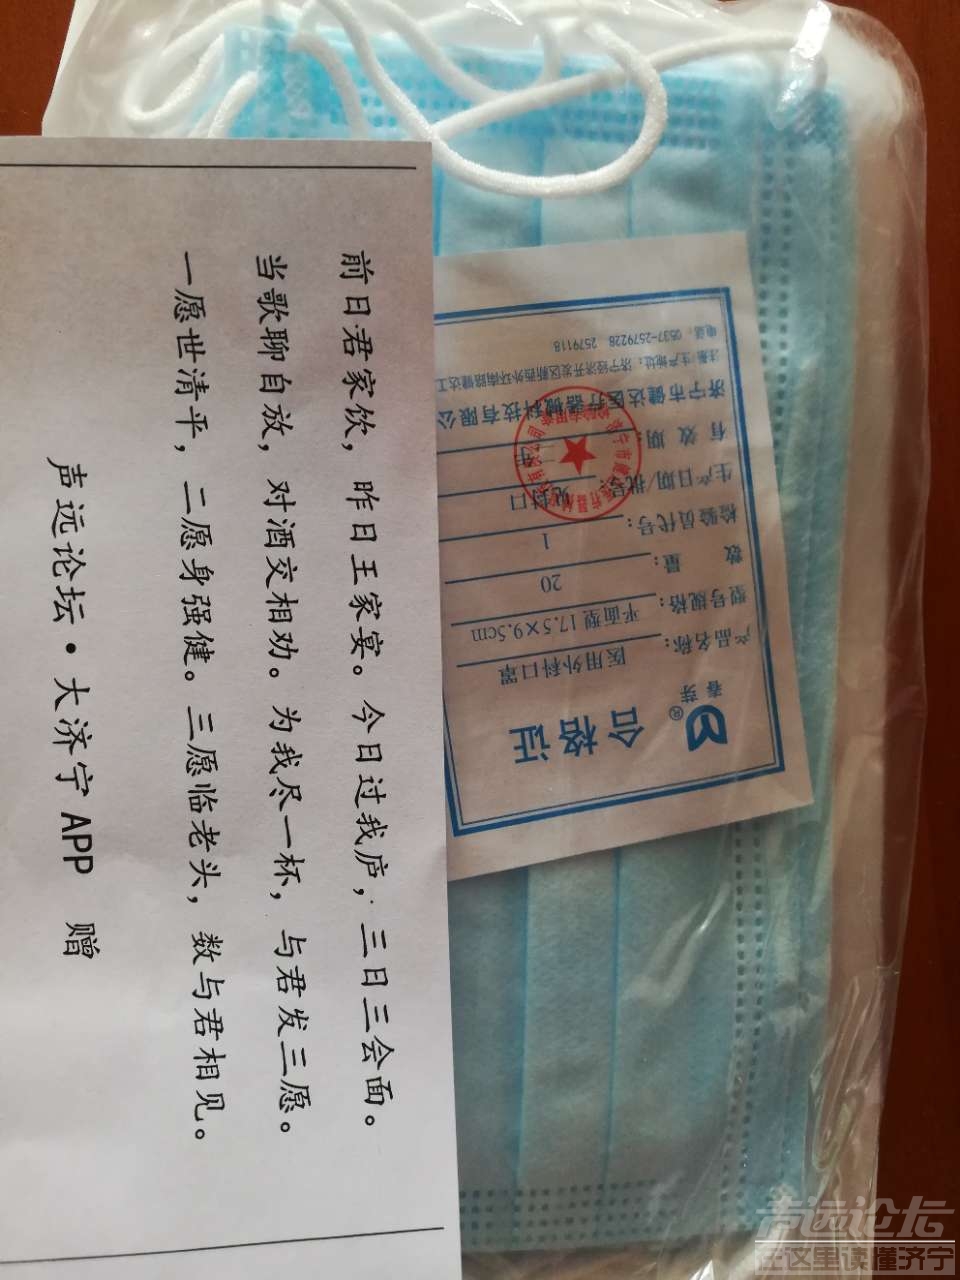 前日君家饮，昨日王家宴。今日过我庐，三日三会面。
当歌聊自放，对酒交相劝。为我尽一杯，与君发三愿。
一愿世清平，二愿身强健。三愿临老头，数与君相见。
声远论坛·大济宁APP 赠
春芽
®
合格证
产品名称：医用外科口罩
型号规格：平面型17.5×9.5cm
数 量：20
检验员代号：1
生产日期/批号：见封口
有 效 期：
济宁市健达医疗器械科技有限公
注册/生产地址：济宁经济开发区新西外环南路健达工
电话：0537-2579228 2579118
声远论坛
在这里读懂济宁